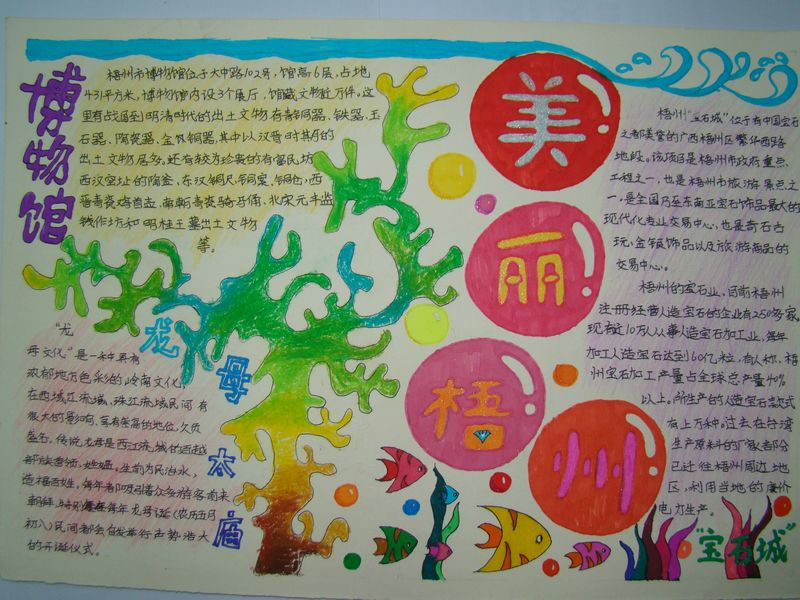 博物馆
梧州市博物馆位于大中路102号，馆高6层，占地
431平方米，博物馆内设3个展厅，馆藏文物近万件。这
里有战遥到明清时代的出土文物有青铜器、铁器、玉
石器、陶瓷器、金银铜器，其中以汉晋时其月的
出土文物居多，还有较为珍贵的有富民坊
西汉窑址的陶釜、东汉铜尺、铜案、铜卮，西
晋青瓷鸡首壶，南朝青瓷骑马俑，北宋元丰监
钱作坊和明桂王墓出土文物
等。
美
丽
梧
州
梧州“宝石城”位于有中国宝石
之都美誉的广西梧州区繁华西路
地段。该项目是梧州市政府重点
工程之一，也是梧州市旅游景点之
一，是全国乃至东南亚宝石饰品最大的
现代化专业交易中心，也是奇石古
玩、金银饰品以及旅游商品的
交易中心。
梧州的宝石业，目前梧州
注册经营人造宝石的企业有250多家，
现有近10万人从事人造宝石加工业，每年
加工人造宝石达到60亿粒，有人称，梧
州宝石加工产量占全球总产量40%
以上。所生产的人造宝石款式
有上万种。过去在台湾
生产原料的厂家，大部分
已迁往梧州周边地
区，利用当地的廉价
电力生产。
“宝石城”
龙母太庙
“龙
母文化”是一种具有
浓郁地方色彩的岭南文化，
在西城江流域、珠江流域民间有
很大的影响，享有崇高的地位，久负
盛名。传说龙母是西江流域的百越
部族首领，她
生前为民治水，
造福百姓，每年都吸引着众多游客前来
朝拜，特别是每年龙母诞（农历五月
初八）民间都会自发举行声势浩大
的开诞仪式。